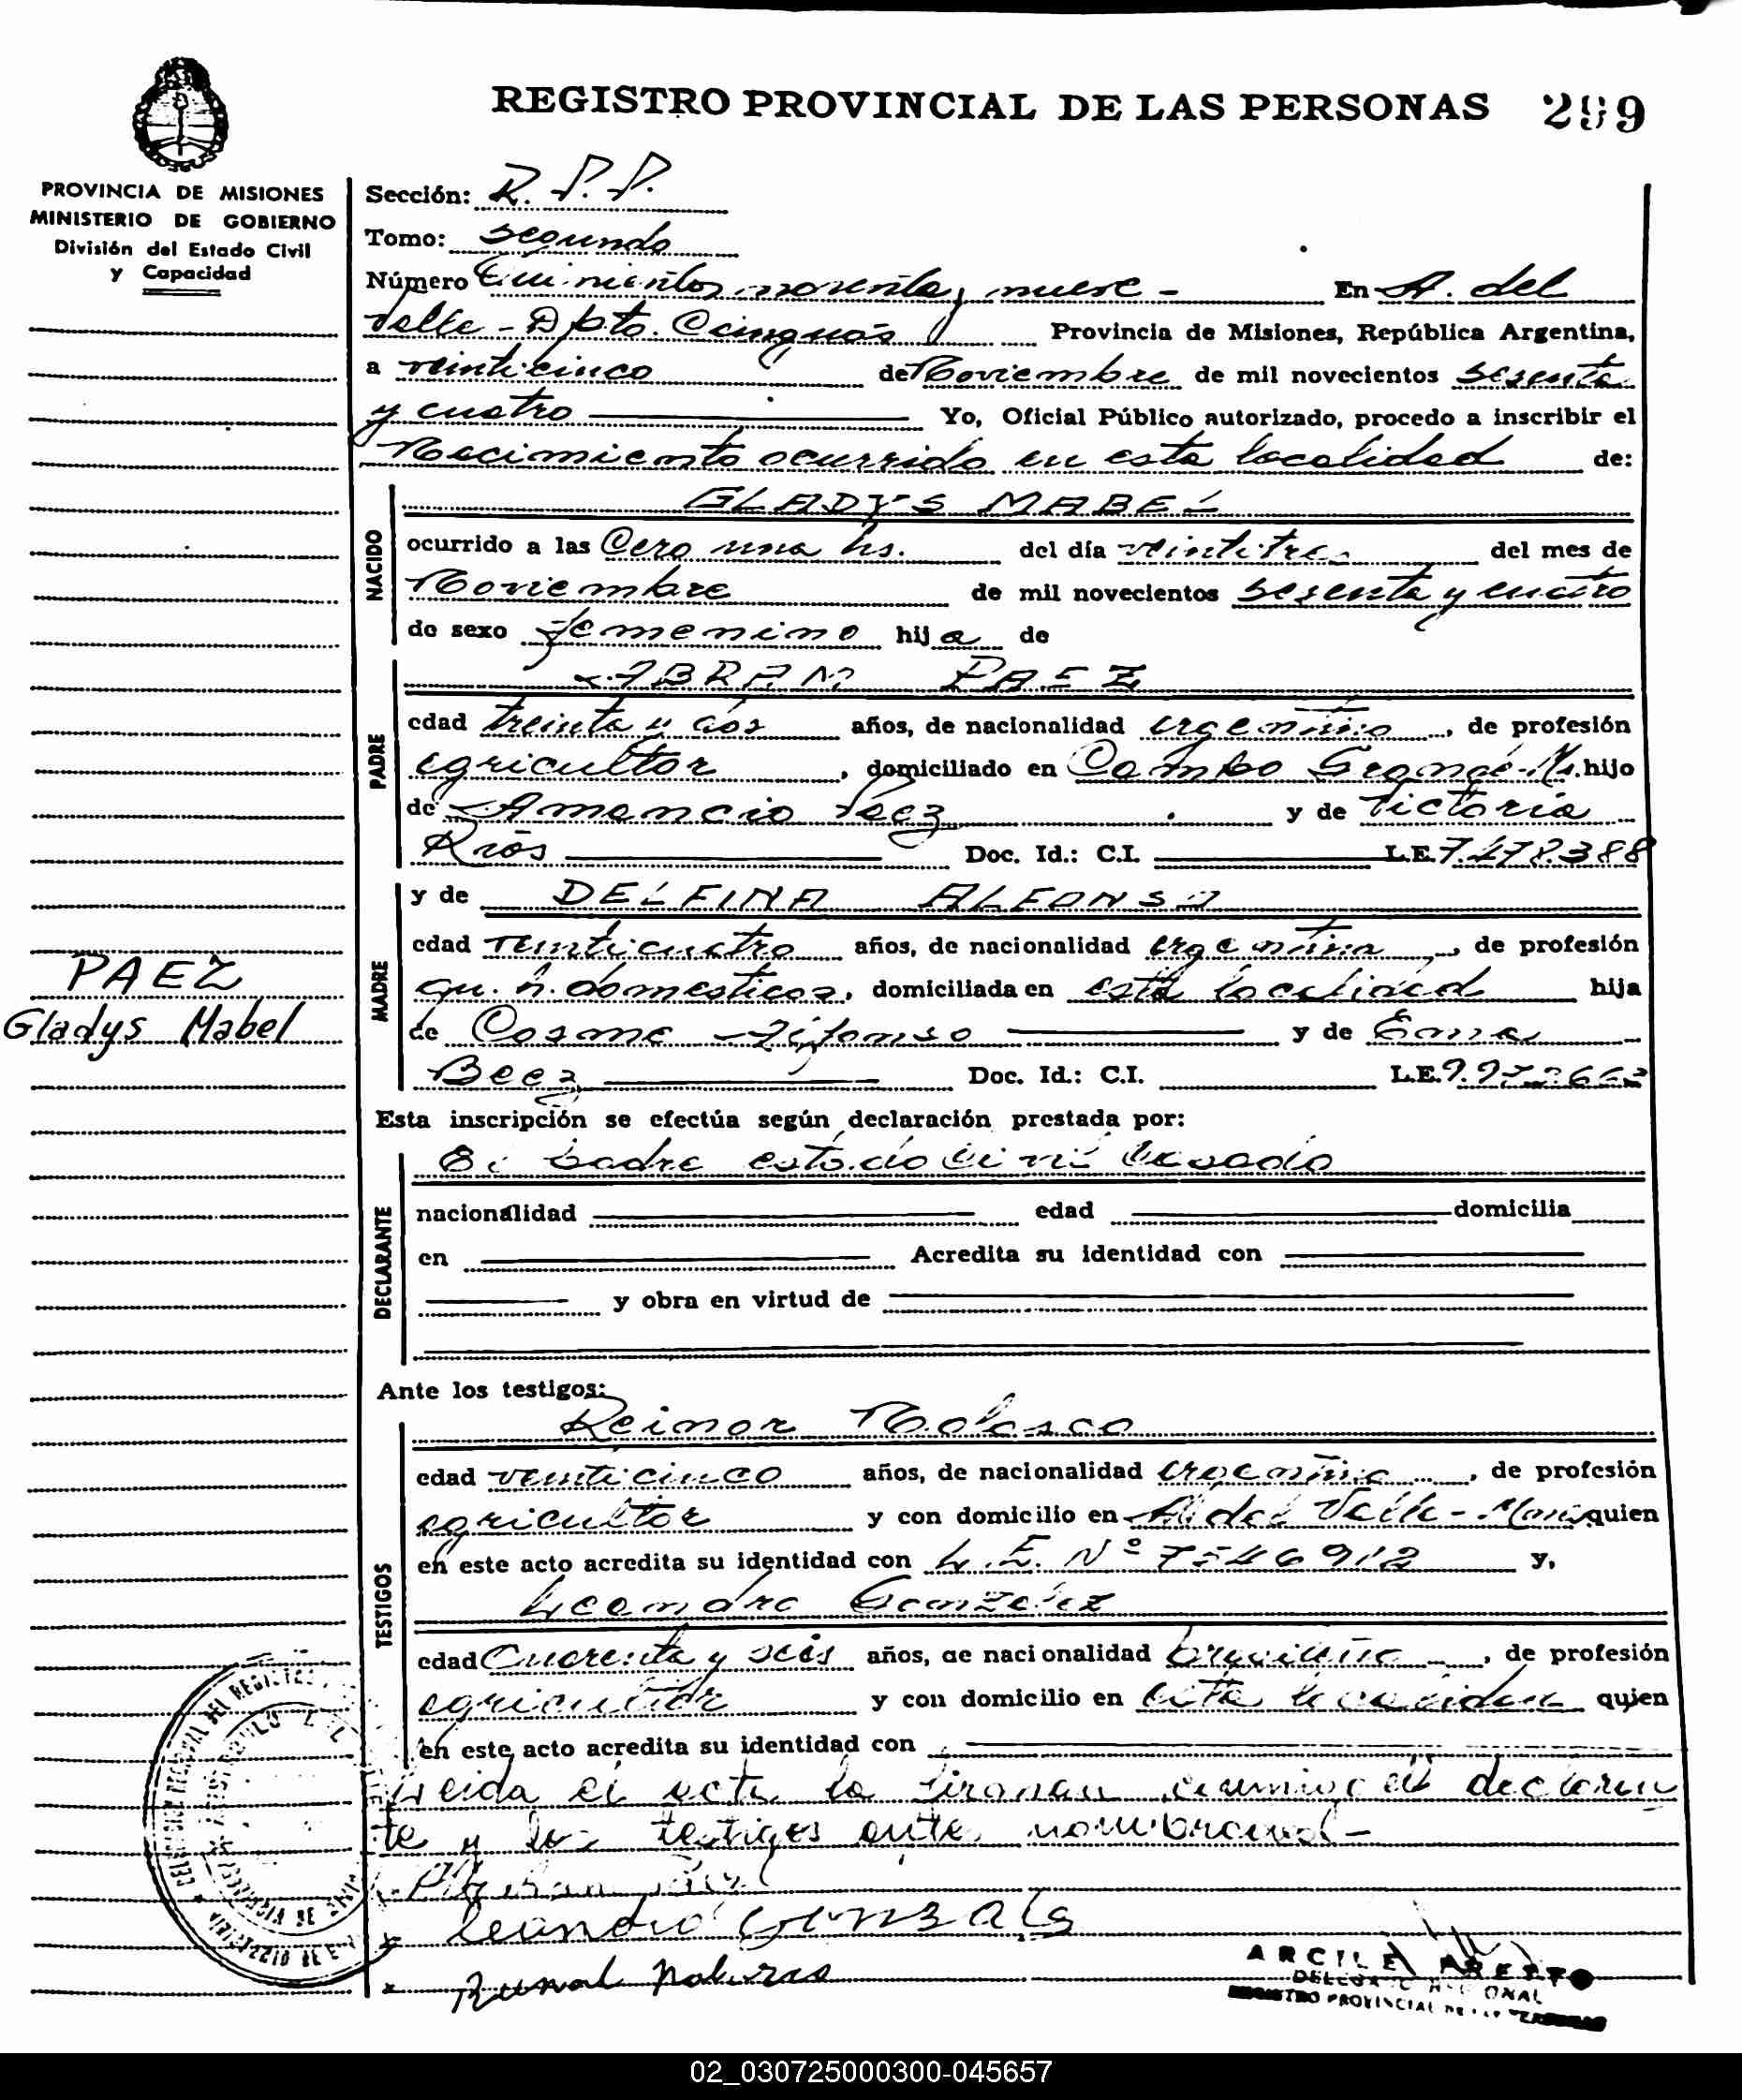 REGISTRO PROVINCIAL DE LAS PERSONAS 299
PROVINCIA DE MISIONES
MINISTERIO DE GOBIERNO
División del Estado Civil
y Capacidad
Sección: R. P. P.
Tomo: segundo
Número Quinientos noventa y nueve - En A. del
Valle - Dpto. Cainguás Provincia de Misiones, República Argentina,
a veinticinco de Noviembre de mil novecientos sesenta
y cuatro Yo, Oficial Público autorizado, procedo a inscribir el
Nacimiento ocurrido en esta localidad de:
NACIDO
GLADYS MABEL
ocurrido a las Cero una hs. del día veintitres del mes de
Noviembre de mil novecientos sesenta y cuatro
de sexo femenino hija de
PADRE
ABRAM PAEZ
edad treinta y dos años, de nacionalidad argentino, de profesión
agricultor, domiciliado en Campo Grande-Ms. hijo
de Amancio Páez y de Victoria
Rios Doc. Id.: C.I. L.E. 7.478.388
MADRE
y de DELFINA ALFONSO
edad veinticuatro años, de nacionalidad argentina, de profesión
qu. h. domesticos, domiciliada en esta localidad hija
de Cosme Alfonso y de
Baez Doc. Id.: C.I. L.E.
PAEZ
Gladys Mabel
Esta inscripción se efectúa según declaración prestada por:
DECLARANTE
El padre estado civil casado
nacionalidad edad domicilia
en Acredita su identidad con
y obra en virtud de
Ante los testigos:
TESTIGOS
Reinor Nolasco
edad veinticinco años, de nacionalidad argentino, de profesión
agricultor y con domicilio en A. del Valle - quien
en este acto acredita su identidad con L.E. Nº 7546912 y,
Leandro Gonzalez
edad Cuarenta y seis años, de nacionalidad brasileña, de profesión
agricultor y con domicilio en esta localidad quien
en este acto acredita su identidad con
Leida el acta la firman conmigo el declaran
te y los testigos ante nombrados -
Abran Paez
leandro gonzals
ARCILE
DELEGADO REGIONAL
REGISTRO PROVINCIAL DE LAS PERSONAS
02_030725000300-045657